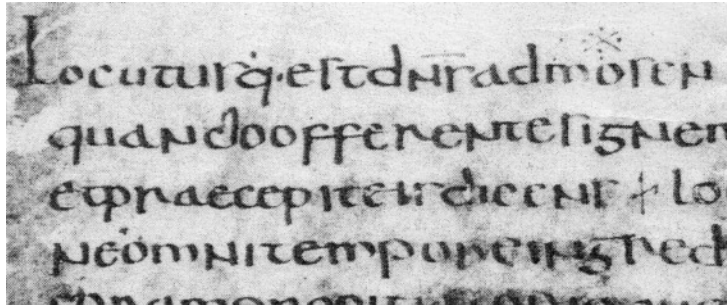 Locutusq·est dns ad mosen
quando offerentes ignen
et praecepit eis dicens lo
ne omni tempore ingred